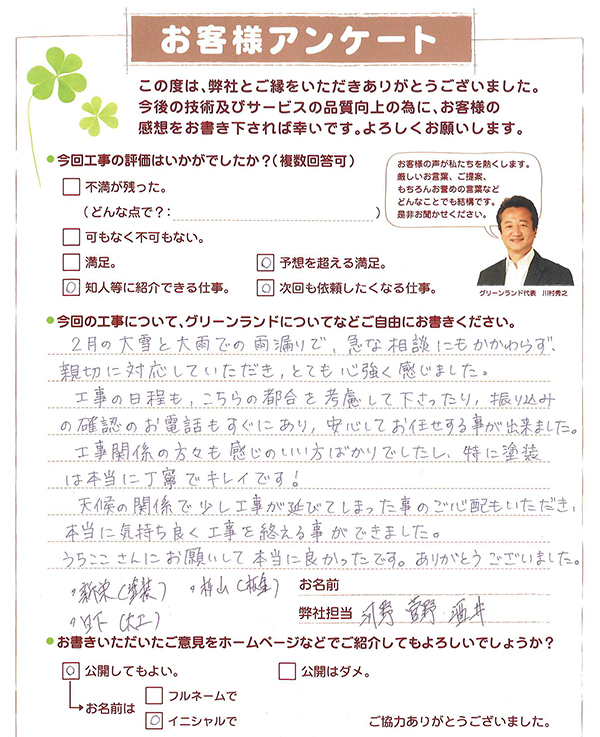 お客様アンケート
この度は、弊社とご縁をいただきありがとうございました。
今後の技術及びサービスの品質向上の為に、お客様の
感想をお書き下されば幸いです。よろしくお願いします。
今回工事の評価はいかがでしたか？（複数回答可）
不満が残った。
（どんな点で？： ）
可もなく不可もない。
満足。
○ 予想を超える満足。
○ 知人等に紹介できる仕事。
○ 次回も依頼したくなる仕事。
お客様の声が私たちを熱くします。
厳しいお言葉、ご提案、
もちろんお誉めの言葉など
どんなことでも結構です。
是非お聞かせください。
グリーンランド代表 川村秀之
今回の工事について、グリーンランドについてなどご自由にお書きください。
2月の大雪と大雨での雨漏りで、急な相談にもかかわらず、
親切に対応していただき、とても心強く感じました。
工事の日程も、こちらの都合を考慮して下さったり、振り込み
の確認のお電話もすぐにあり、安心してお任せする事が出来ました。
工事関係の方々も感じのいい方ばかりでしたし、特に塗装
は本当に丁寧でキレイです！
天候の関係で少し工事が延びてしまった事のご心配もいただき、
本当に気持ち良く工事を終える事ができました。
うちここさんにお願いして本当に良かったです。ありがとうございました。
新栄（塗装）
日下（大工）
お名前
弊社担当 河野 菅野 酒井
お書きいただいたご意見をホームページなどでご紹介してもよろしいでしょうか？
○ 公開してもよい。
公開はダメ。
お名前は
フルネームで
○ イニシャルで
ご協力ありがとうございました。